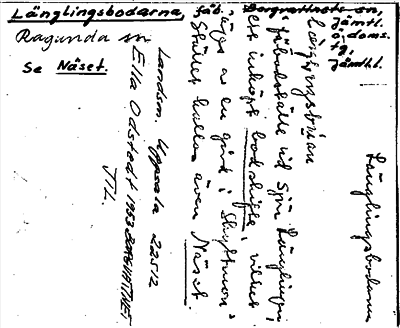 Länglingsbodarna, fäb., Borgvattnets sn,
Jämtl.
ö. doms.
tg,
Jämtl.l.
Ragunda sn
Se Näset.
Länglingsbodarna
fäbodställe vid sjön Länglingen,
ett inköpt bodskifte, vilket
äges av en gård i Skyttmon.
Stället kallas även Näset.
Landsm. Uppsala 22512
Ella Odstedt 1953 BORGVATTNET
JTL.